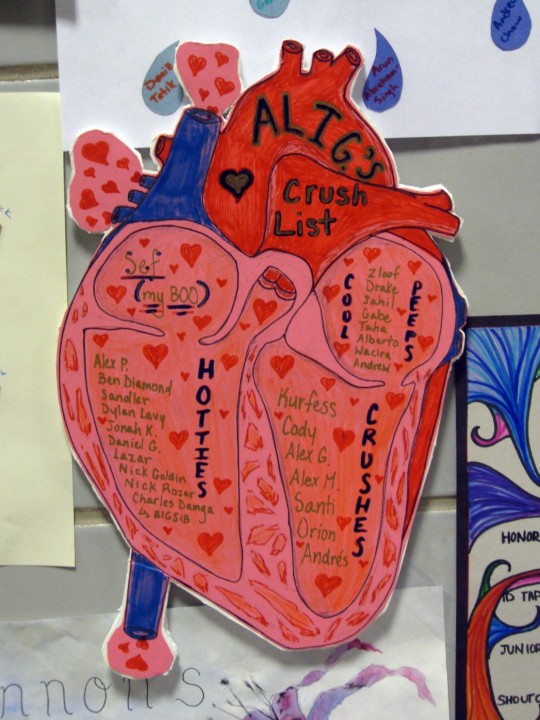 Denix
Tetik
Arun
Abraham
Singh
Andrew
Chow
ALIG.'S
Crush
List
Sef
(my BOO)
COOL
PEEPS
Zloof
Drake
Sahil
Gabe
Taha
Alberto
Wacira
Andrew
HOTTIES
Alex P.
Ben Diamond
Sandler
Dylan Levy
Jonah K.
Daniel G.
Lazar
Nick Goldin
Nick Rozar
Charles Danga
↳ BIGSIB
CRUSHES
Kurfess
Cody
Alex G.
Alex M.
Santi
Orion
Andrés
HONOR
JUNIOR
SHOUR
nnon's